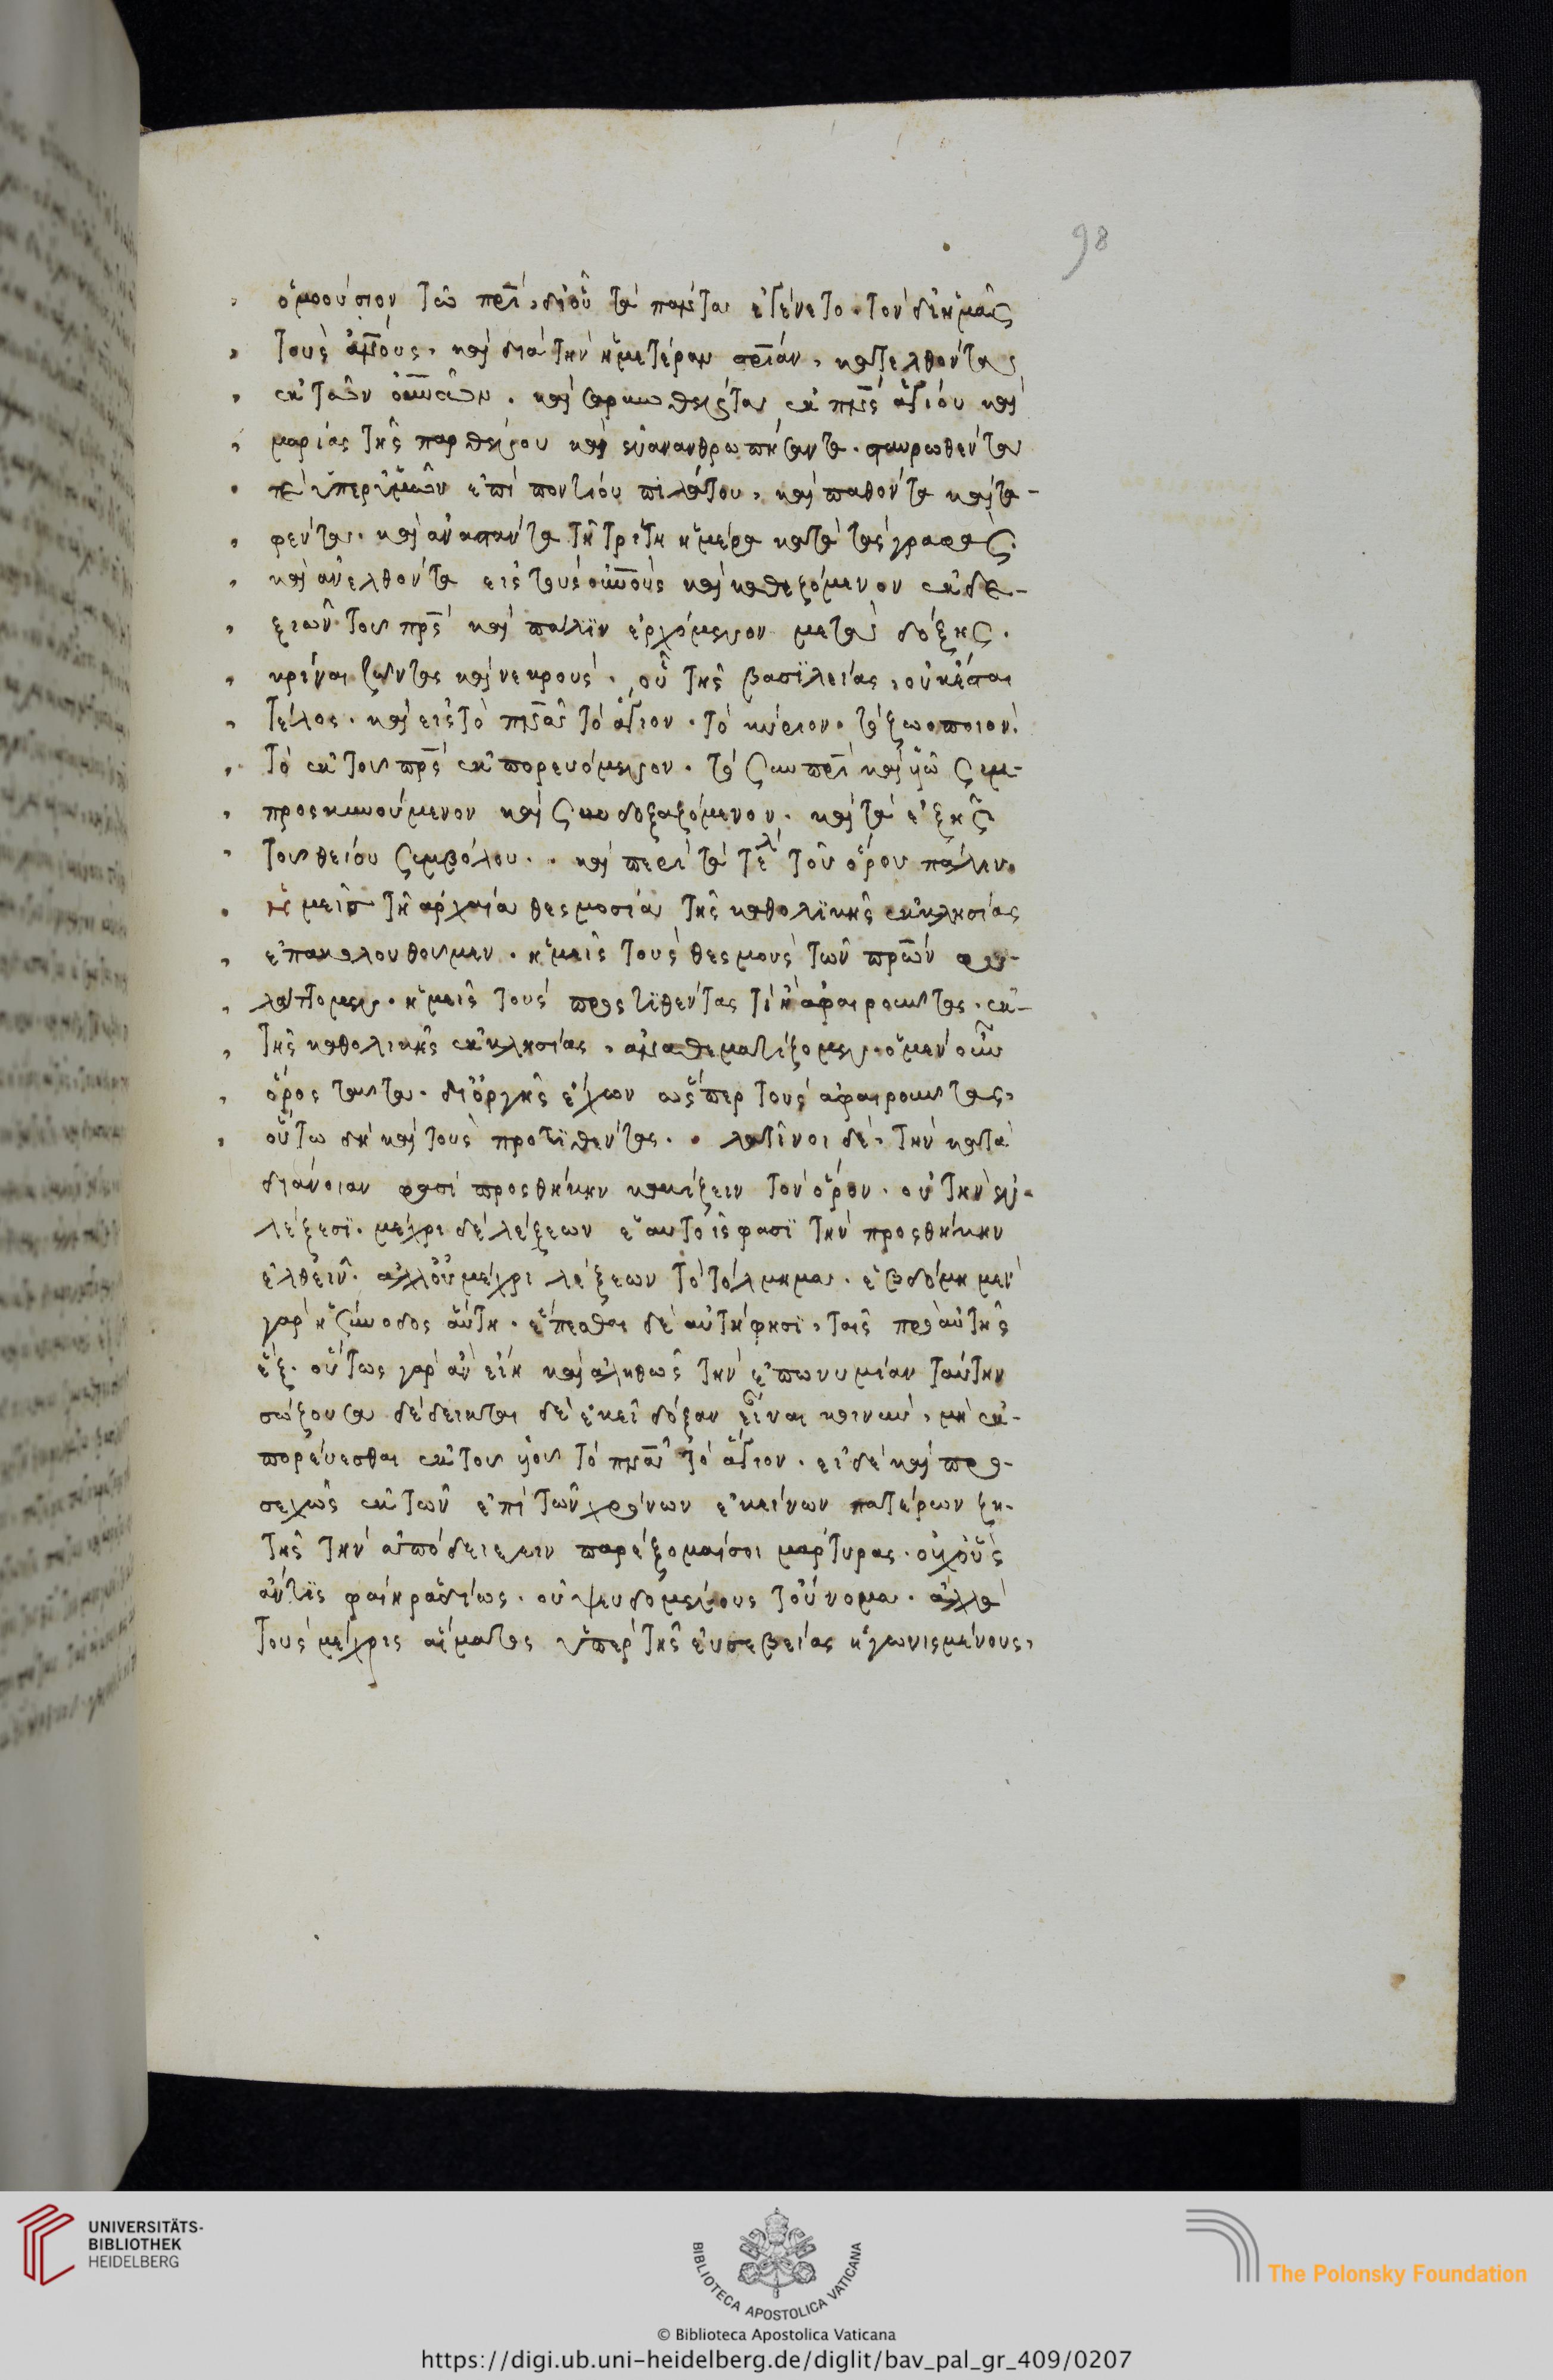 98
ὁμοούσιον τῶ πρῒ, δι' οὗ τὰ πάντα ἐγένετο. τὸν δι' ἡμᾶς
τοὺς ἀνους, καὶ διὰ τὴν ἡμετέραν σρίαν, κατελθόντα
ἐκ τῶν οὐνῶν. καὶ σαρκωθέντα ἐκ πνς ἁγίου καὶ
μαρίας τῆς παρθένου καὶ ἐνανθρωπήσαντα. σταυρωθέντα
τὲ ὑπὲρ ἡμῶν ἐπὶ ποντίου πιλάτου, καὶ παθόντα καὶ τα-
φέντα. καὶ ἀναστάντα τῆ τρίτη ἡμέρα κατὰ τὰς γραφάς.
καὶ ἀνελθόντα εἰς τοὺς οὐνοὺς καὶ καθεζόμενον ἐκ δε-
ξιῶν τοῦ πρς καὶ πάλϊν ἐρχόμενον μετὰ δόξης.
κρῖναι ζῶντας καὶ νεκρούς. οὗ τῆς βασϊλείας, οὐκ ἔσται
τέλος. καὶ εἰς τὸ πνα τὸ ἅγιον. τὸ κύριον. τὸ ζωοποιόν.
τὸ ἐκ τοῦ πρς ἐκπορευόμενον. τὸ σὺν πρὶ καὶ υἱῶ συμ-
προσκυνούμενον καὶ συνδοξαζόμενον. καὶ τὰ ἑξῆς
τοῦ θείου συμβόλου. καὶ περὶ τὰ τέλ τοῦ ὅρου πάλιν.
ἡμεῖς τῆ ἀρχαία θεσμοσία τῆς καθολϊκῆς ἐκκλησίας
ἐπακολουθοῦμεν. ἡμεῖς τοὺς θεσμοὺς τῶν πρῶν φυ-
λάττομεν. ἡμεῖς τοὺς προστϊθέντας τὶ ἢ ἀφαιροῦντας ἐκ
τῆς καθολικῆς ἐκκλησίας, ἀναθεματίζομεν. ὁ μὲν οὖν
ὅρος ταῦτα. δι' ὀργῆς ἔχων ὥσπερ τοὺς ἀφαιροῦντας,
οὕτω δὴ καὶ τοὺς προτϊθέντας. λατῖνοι δὲ, τὴν κατὰ
διάνοιαν φασὶ προσθήκην κακίζειν τὸν ὅρον. οὐ τὴν ἐν
λέξεσϊ. μέχρι δὲ λέξεων ἑαυτοῖς φασϊ τὴν προσθήκην
ἐλθεῖν. ἀλλ' οὐ μέχρι λέξεων τὸ τόλμημα. ἑβδόμη μὲν
γὰρ ἡ σύνοδος αὕτη. ἕπεσθαι δὲ αὐτὴ φησϊ, ταῖς πρὸ αὐτῆς
ἕξ. οὕτως γὰρ ἂν εἴη καὶ ἀληθῶς τὴν ἐπωνυμίαν ταύτην
σώζουσα δέδεικται δὲ ἐκεῖ δόξαν εἶναι κοινὴν, μὴ ἐκ-
πορεύεσθαι ἐκ τοῦ υἱοῦ τὸ πνα τὸ ἅγιον. εἰ δὲ καὶ προ-
σεχῶς ἐκ τῶν ἐπὶ τῶν χρόνων ἐκείνων πατέρων ζη-
τῆς τὴν ἀπόδειξειν παρέξομαί σοι μάρτυρας. οὐχ οὓς
ἄν τϊς φαίη ραδίως. οὐ ψευδομένους τοὔνομα. ἀλλὰ
τοὺς μέχρις αἵματος ὑπὲρ τῆς εὐσεβείας ἠγωνισμένους,
UNIVERSITÄTS-
BIBLIOTHEK
HEIDELBERG
BIBLIOTECA APOSTOLICA VATICANA
The Polonsky Foundation
© Biblioteca Apostolica Vaticana
https://digi.ub.uni-heidelberg.de/diglit/bav_pal_gr_409/0207